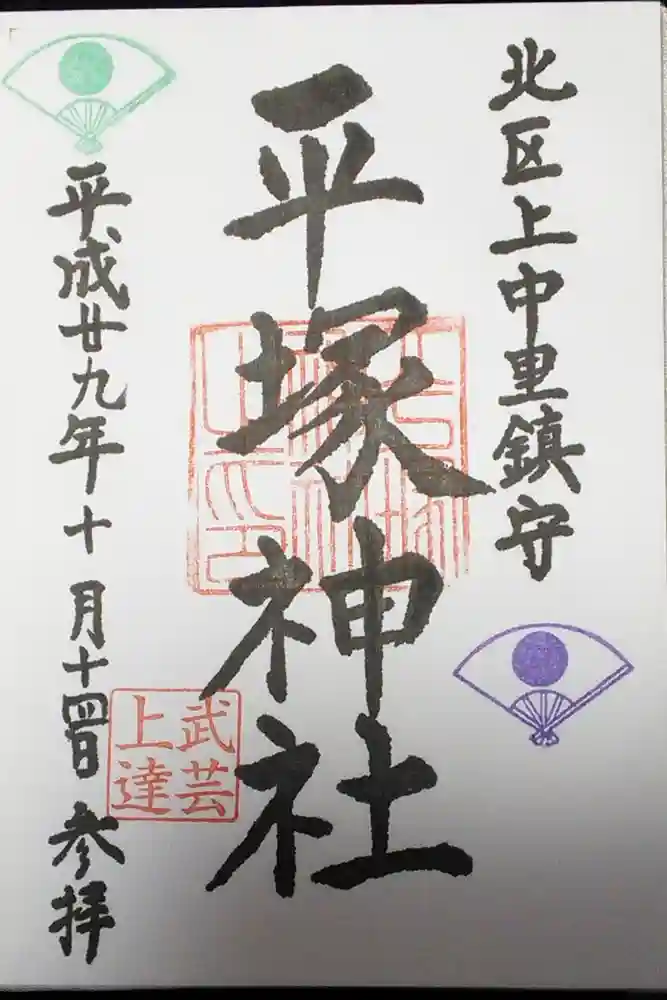 北区上中里鎮守
平塚神社
武芸
上達
平成廿九年十月十四日 参拝